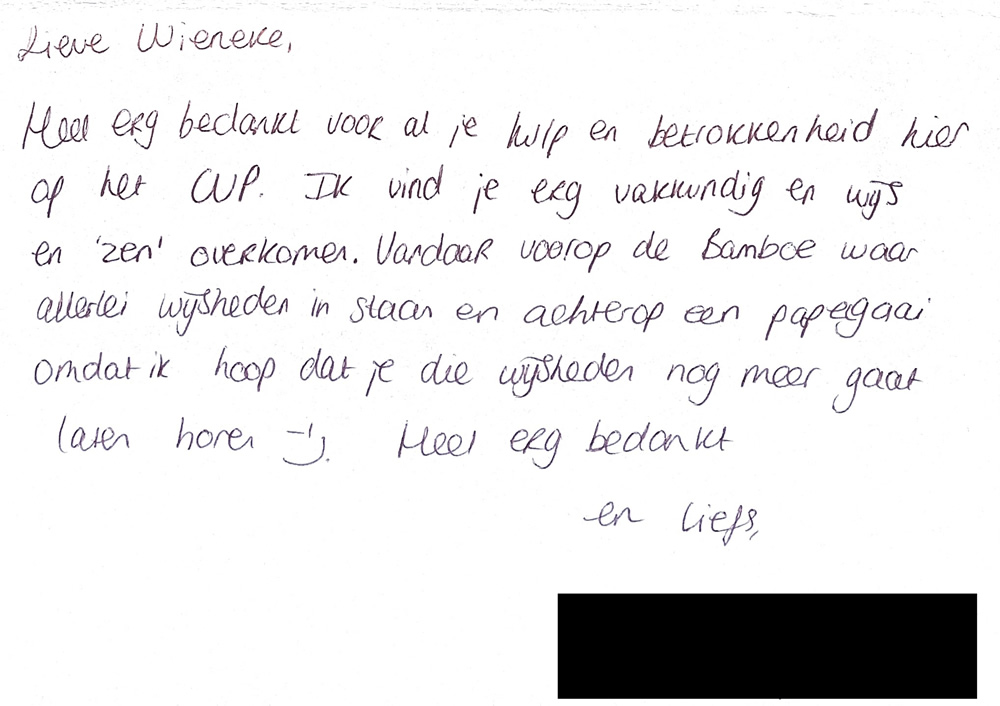 Lieve Wieneke,
Heel erg bedankt voor al je hulp en betrokkenheid hier
op het CVP. Ik vind je erg vakkundig en wijs
en 'zen' overkomen. Vandaar voorop de Bamboe waar
allerlei wijsheden in staan en achterop een papegaai
omdat ik hoop dat je die wijsheden nog meer gaat
laten horen :). Heel erg bedankt
en Liefs,